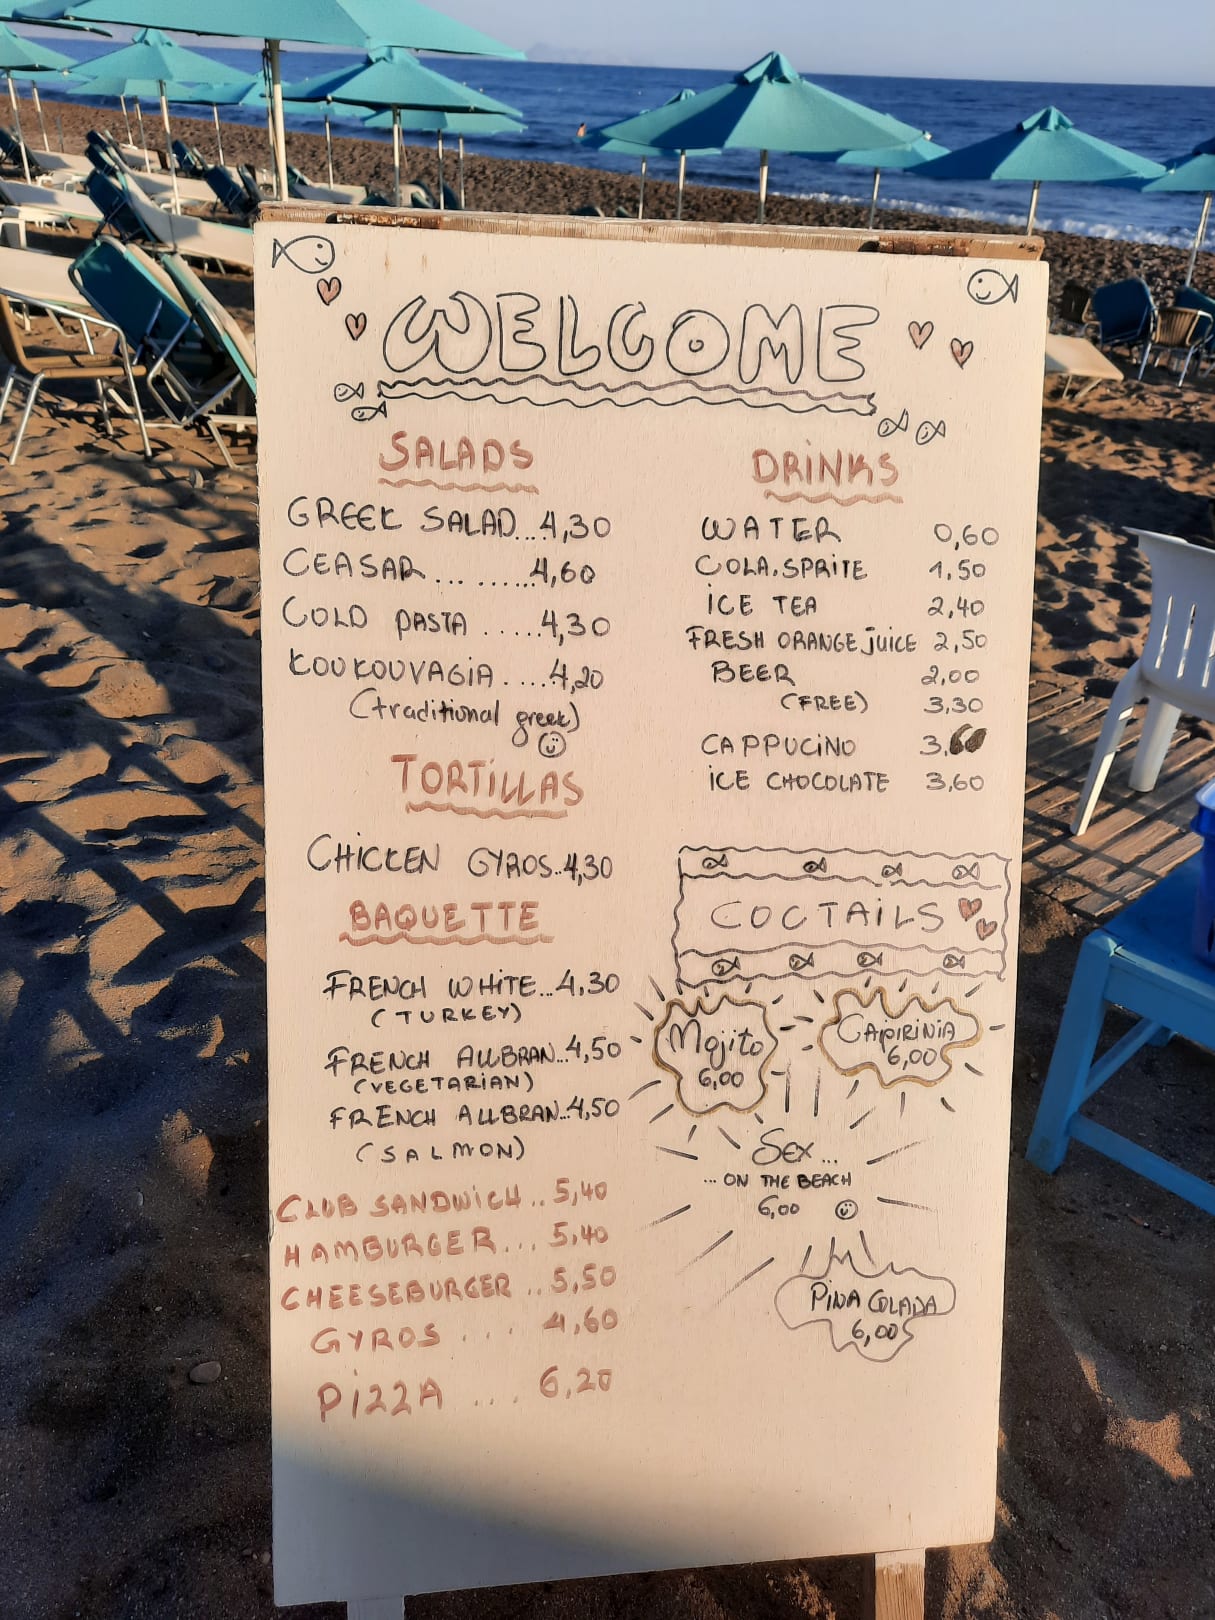 WELCOME
SALADS
GREEK SALAD...4,30
CEASAR.........4,60
COLD PASTA .....4,30
KOUKOUVAGIA....4,20
(traditional greek)
TORTILLAS
CHICKEN GYROS..4,30
BAQUETTE
FRENCH WHITE...4,30
(TURKEY)
FRENCH ALLBRAN...4,50
(VEGETARIAN)
FRENCH ALLBRAN..4,50
(SALMON)
CLUB SANDWICH..5,40
HAMBURGER...5,40
CHEESEBURGER..5,50
GYROS ... 4,60
PIZZA ... 6,20
DRINKS
WATER 0,60
COLA.SPRITE 1,50
ICE TEA 2,40
FRESH ORANGE JUICE 2,50
BEER 2,00
(FREE) 3,30
CAPPUCINO 3,60
ICE CHOCOLATE 3,60
COCTAILS
Mojito
6,00
CAPIRINIA
6,00
SEX...
...ON THE BEACH
6,00
PINA COLADA
6,00